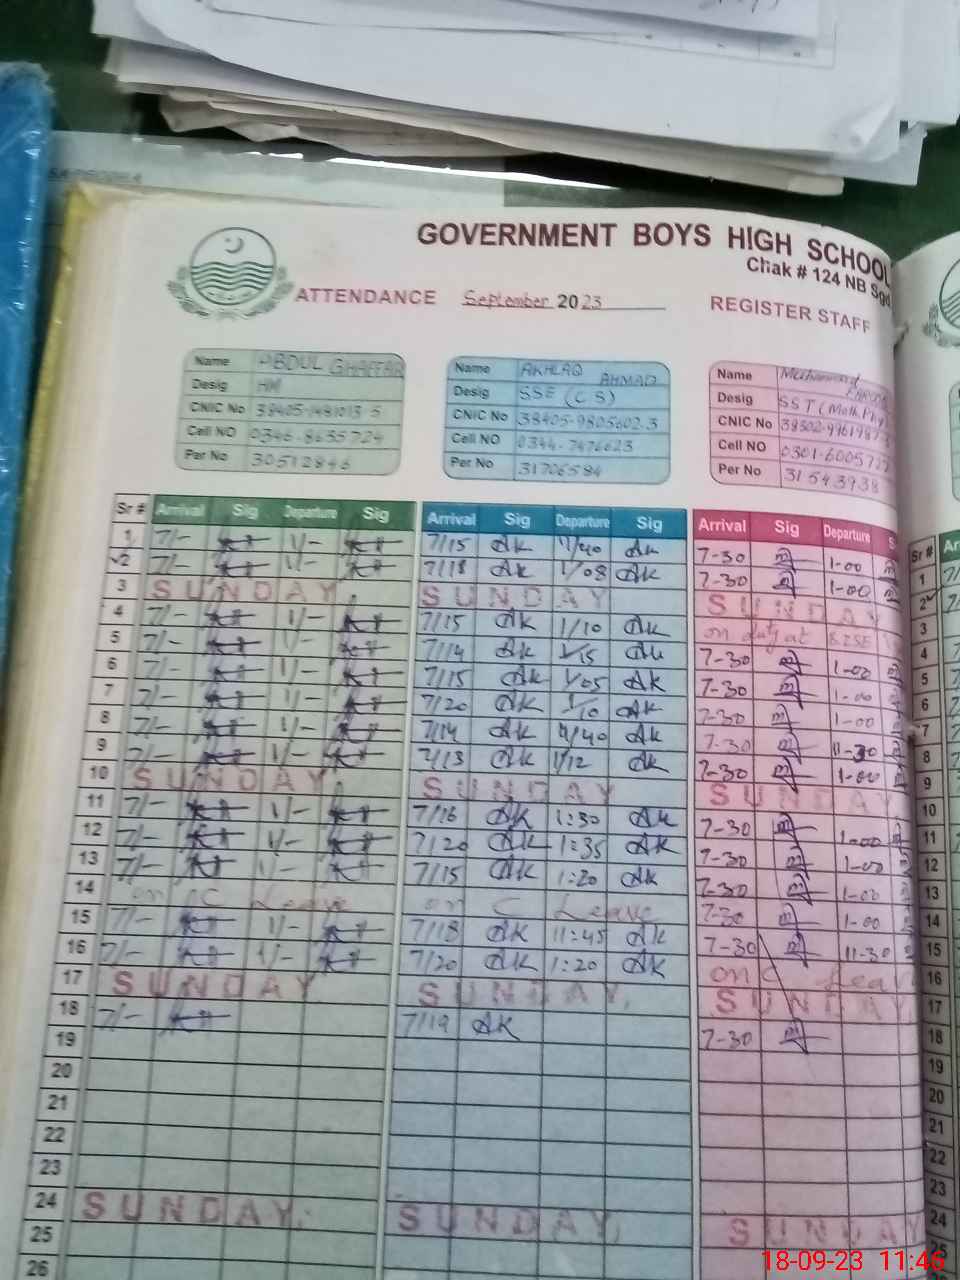 GOVERNMENT BOYS HIGH SCHOOL
Chak # 124 NB Sgd
ATTENDANCE September 2023 REGISTER STAFF
Name ABDUL GHAFFAR Name AKHLAQ AHMAD Name Muhammad
Desig HM Desig SSE (C S) Desig SST (Math, Phy)
CNIC No 38405-1481013-5 CNIC No 38405-9805602-3 CNIC No
Cell NO 0346-8655724 Cell NO 0344-7476623 Cell NO
Per No 30512846 Per No 31706584 Per No 31543938
Sr # Arrival Sig Departure Sig Arrival Sig Departure Sig Arrival Sig Departure S Sr # Ar
1 7/- 1/- 7/15 AK AK 7-30 1-00 1
2 7/- 1/- 7/18 AK 1/08 AK 7-30 1-00 2
3 SUNDAY SUNDAY SUNDAY 3
4 7/- 1/- 7/15 AK 1/10 AK on duty at BISE 4
5 7/- 1/- 7/14 AK 1/15 AK 7-30 1-00 5
6 7/- 1/- 7/15 AK 1/05 AK 7-30 1-00 6
7 7/- 1/- 7/20 AK 1/10 AK 7-30 1-00 7
8 7/- 1/- 7/14 AK AK 7-30 11-30 8
9 7/- 1/- 7/13 AK 1/12 AK 7-30 1-00 9
10 SUNDAY SUNDAY SUNDAY 10
11 7/- 1/- 7/16 AK 1:30 AK 7-30 1-00 11
12 7/- 1/- 7/20 AK 1:35 AK 7-30 1-00 12
13 7/- 1/- 7/15 AK 1:20 AK 7-30 1-00 13
14 on C Leave on C Leave 7-30 1-00 14
15 7/- 1/- 7/18 AK 11:45 AK 7-30 11-30 15
16 7/- 1/- 7/20 AK 1:20 AK on C Leav 16
17 SUNDAY SUNDAY SUNDAY 17
18 7/- 7/19 AK 7-30 18
19 19
20 20
21 21
22 22
23 23
24 SUNDAY SUNDAY SUNDAY 24
25 25
26
18-09-23 11:46